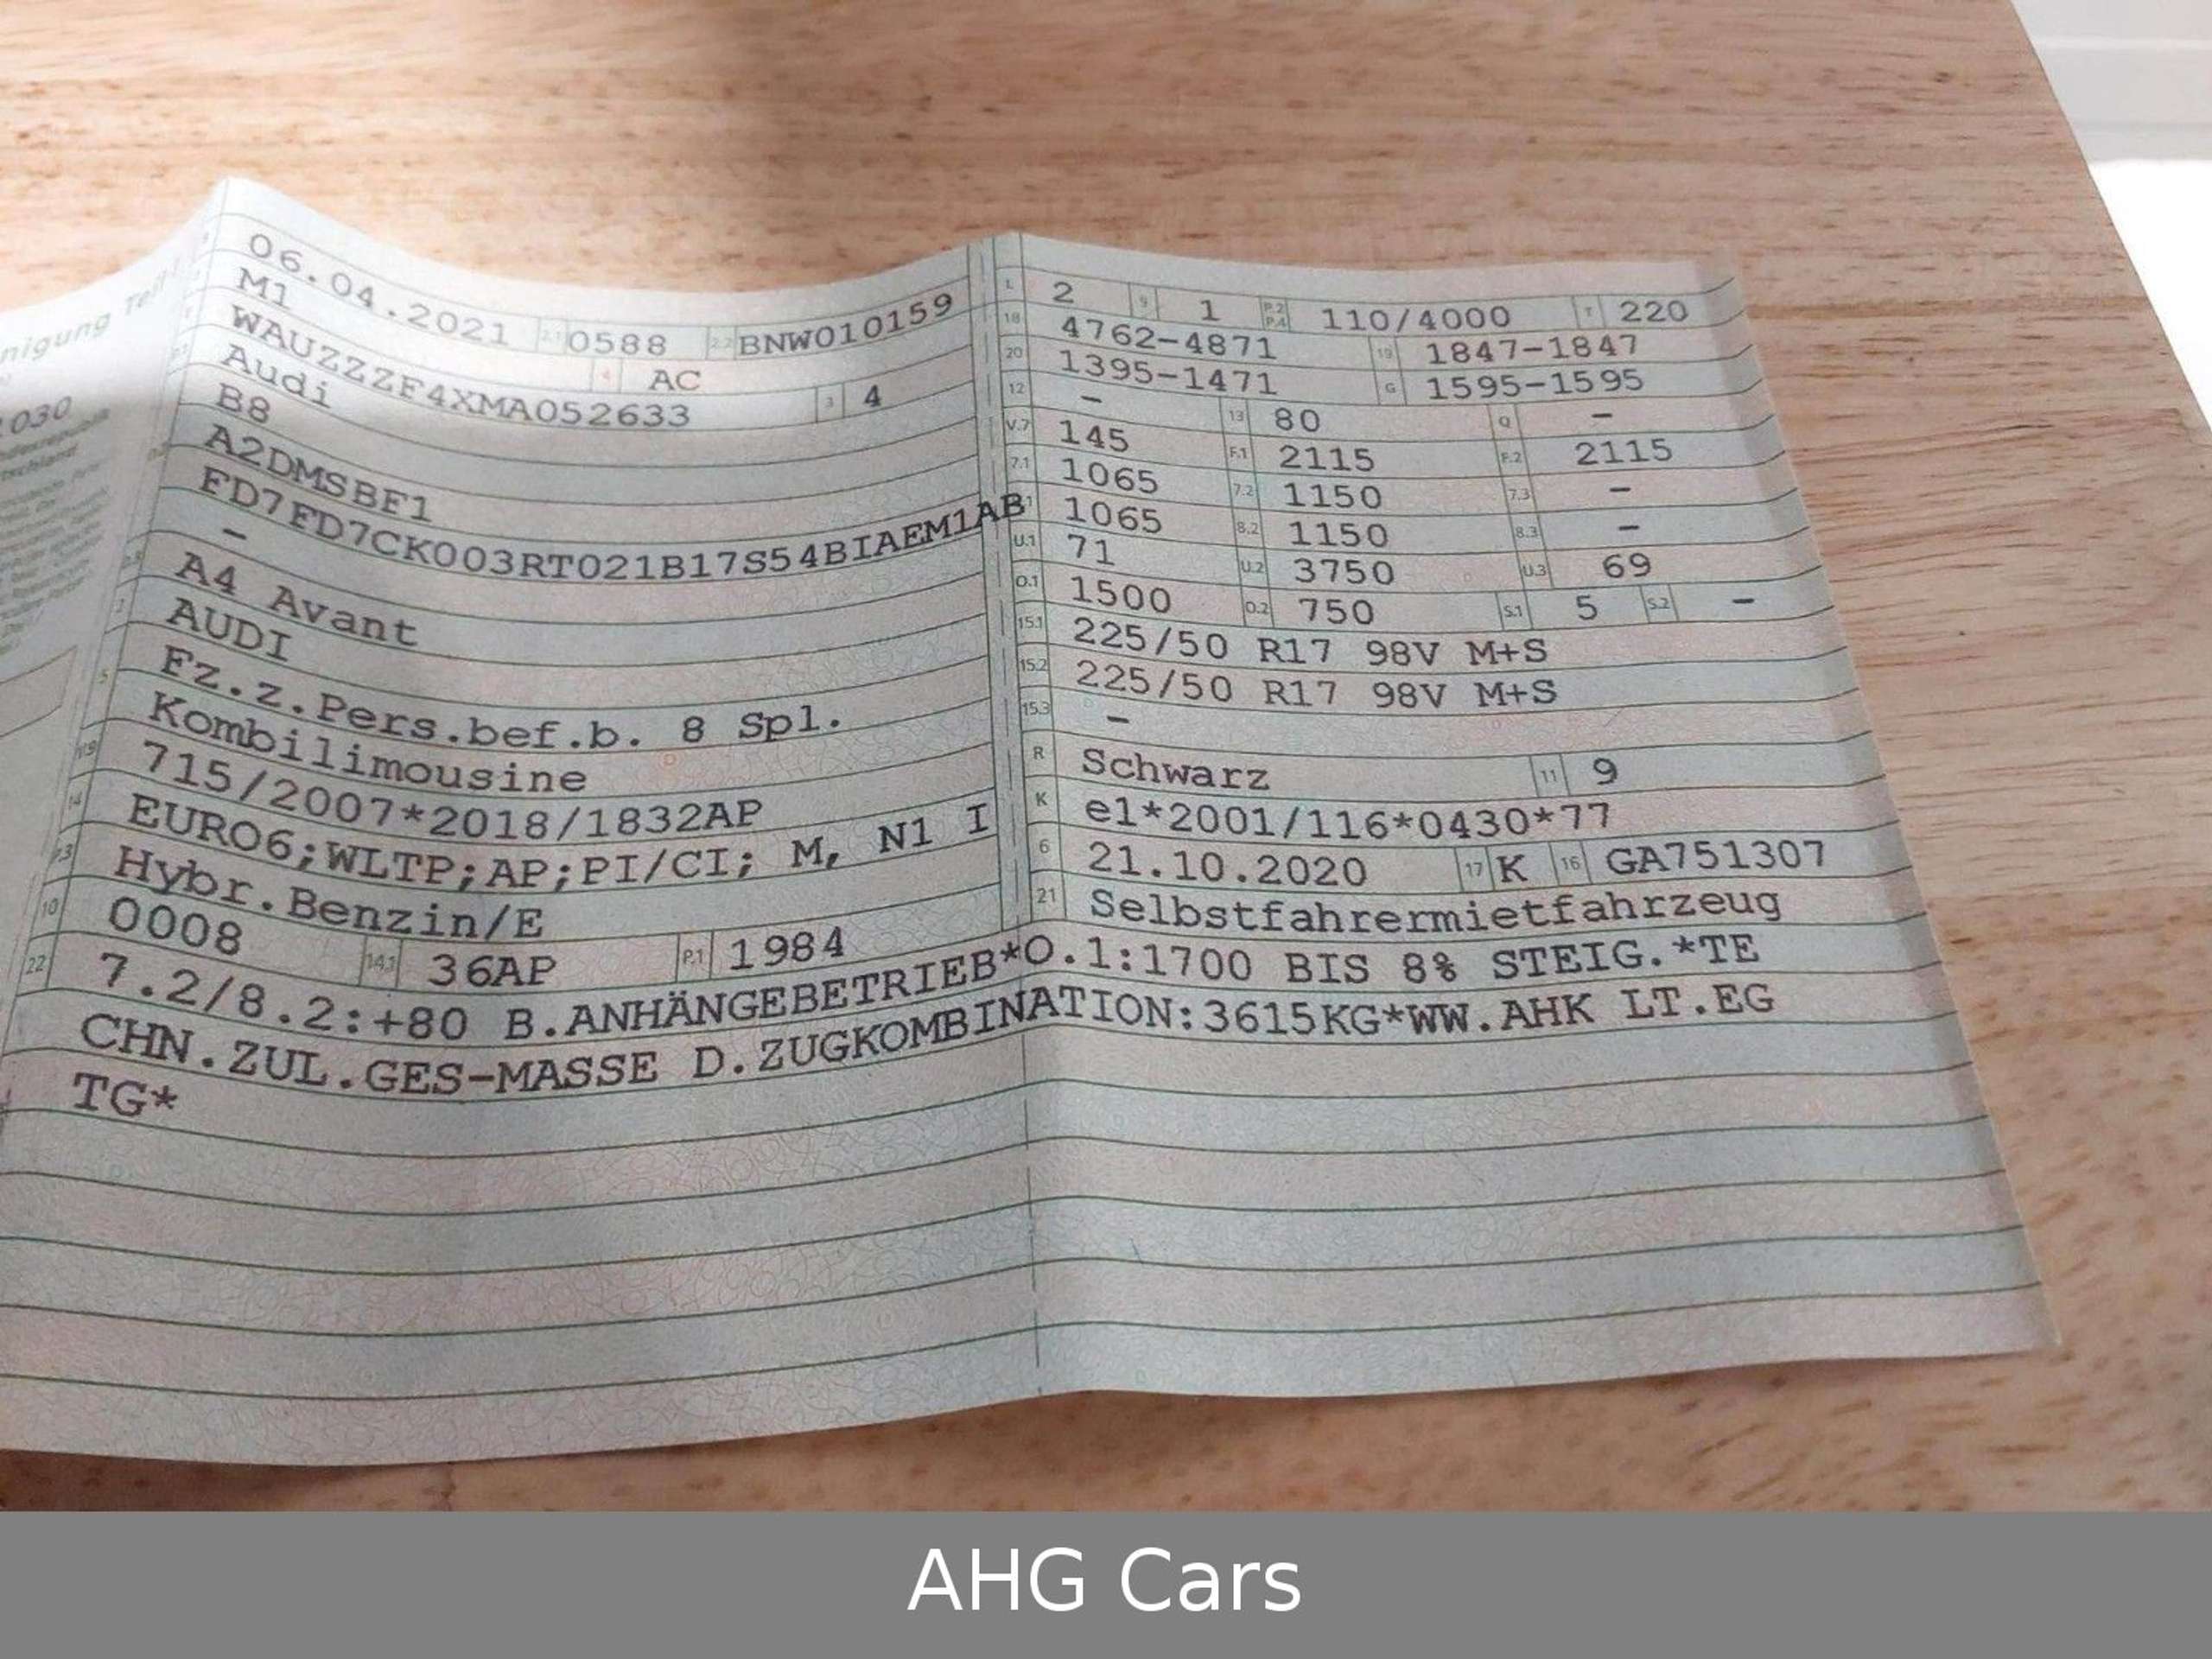 nigung Teil
030
06.04.2021 2.1 0588 2.2 BNW010159
M1 4 AC
WAUZZZF4XMA052633 3 4
Audi
B8
A2DMSBF1
FD7FD7CK003RT021B17S54BIAEM1AB
–
A4 Avant
AUDI
5 Fz.z.Pers.bef.b. 8 Spl.
Kombilimousine
V.9 715/2007*2018/1832AP
14 EURO6;WLTP;AP;PI/CI; M, N1 I
P.3 Hybr.Benzin/E
10 0008 14.1 36AP P.1 1984
L 2 9 1 P.2 P.4 110/4000 T 220
18 4762-4871 19 1847-1847
20 1395-1471 G 1595-1595
12 – 13 80 Q –
V.7 145 F.1 2115 F.2 2115
7.1 1065 7.2 1150 7.3 –
1065 8.2 1150 8.3 –
U.1 71 U.2 3750 U.3 69
O.1 1500 O.2 750 S.1 5 S.2 –
15.1 225/50 R17 98V M+S
15.2 225/50 R17 98V M+S
15.3 –
R Schwarz 11 9
K e1*2001/116*0430*77
6 21.10.2020 17 K 16 GA751307
21 Selbstfahrermietfahrzeug
22 7.2/8.2:+80 B.ANHÄNGEBETRIEB*O.1:1700 BIS 8% STEIG.*TE
CHN.ZUL.GES-MASSE D.ZUGKOMBINATION:3615KG*WW.AHK LT.EG
TG*
AHG Cars